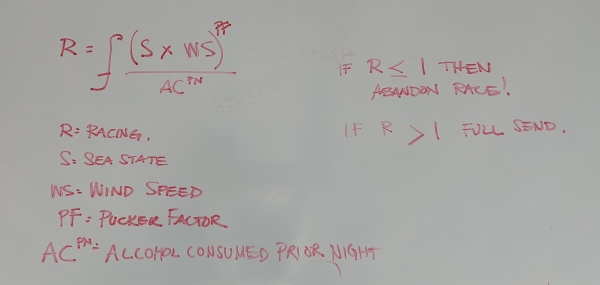 R = ∫ (S x WS)^PF
AC^PN
R= RACING.
S= SEA STATE
WS= WIND SPEED
PF= PUCKER FACTOR
AC^PN= ALCOHOL CONSUMED PRIOR NIGHT
IF R ≤ 1 THEN
ABANDON RACE!
IF R > 1 FULL SEND.